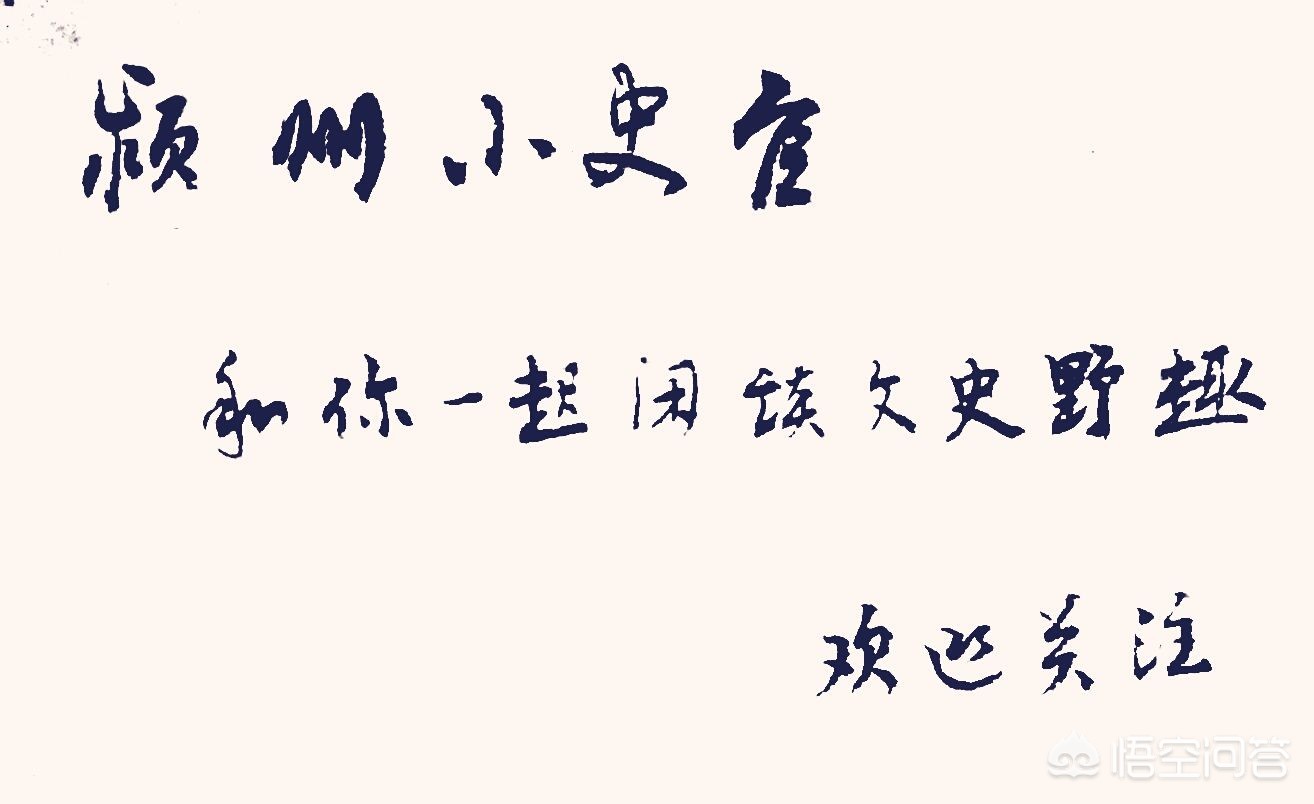 颍州小史官
和你一起闲谈文史野趣
欢迎关注
悟空问答